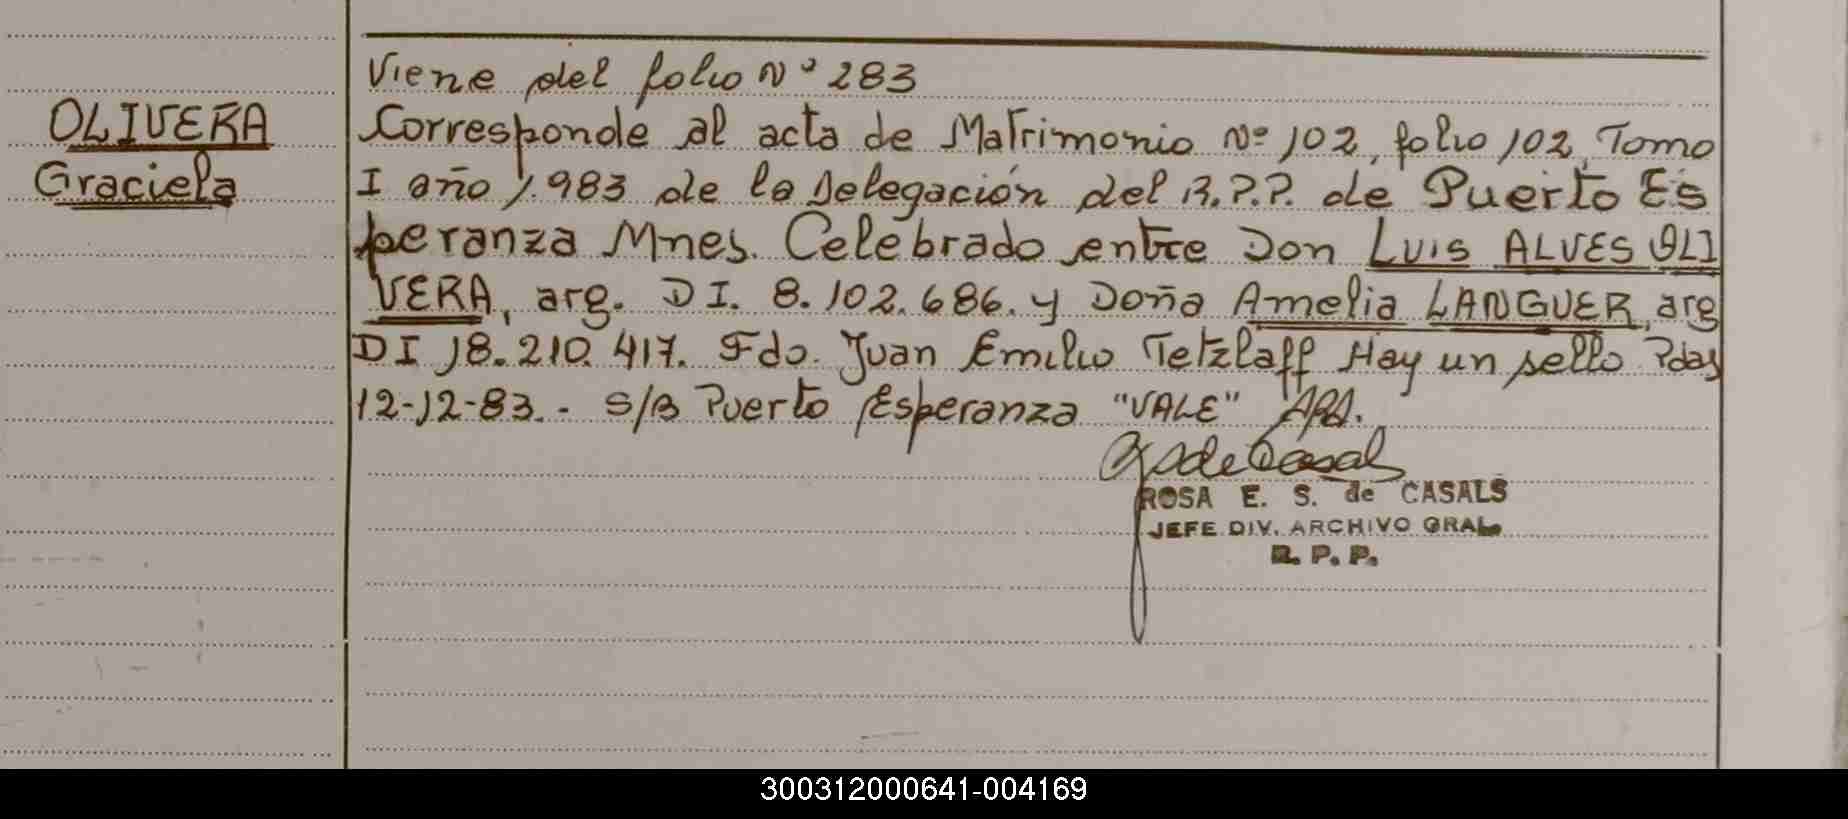 OLIVERA
Graciela
Viene del folio Nº 283
Corresponde al acta de Matrimonio Nº 102, folio 102, Tomo
I año 1.983 de la Delegación del R.P.P. de Puerto Es
peranza Mnes. Celebrado entre Don Luis ALVES OLI
VERA, arg. DI. 8.102.686. y Doña Amelia LANGUER, arg
DI 18.210.417. Fdo. Juan Emilio Tetzlaff Hay un sello Pdas
12-12-83.- S/B Puerto Esperanza "VALE"
de Casals
ROSA E. S. de CASALS
JEFE DIV. ARCHIVO GRAL.
R. P. P.
300312000641-004169